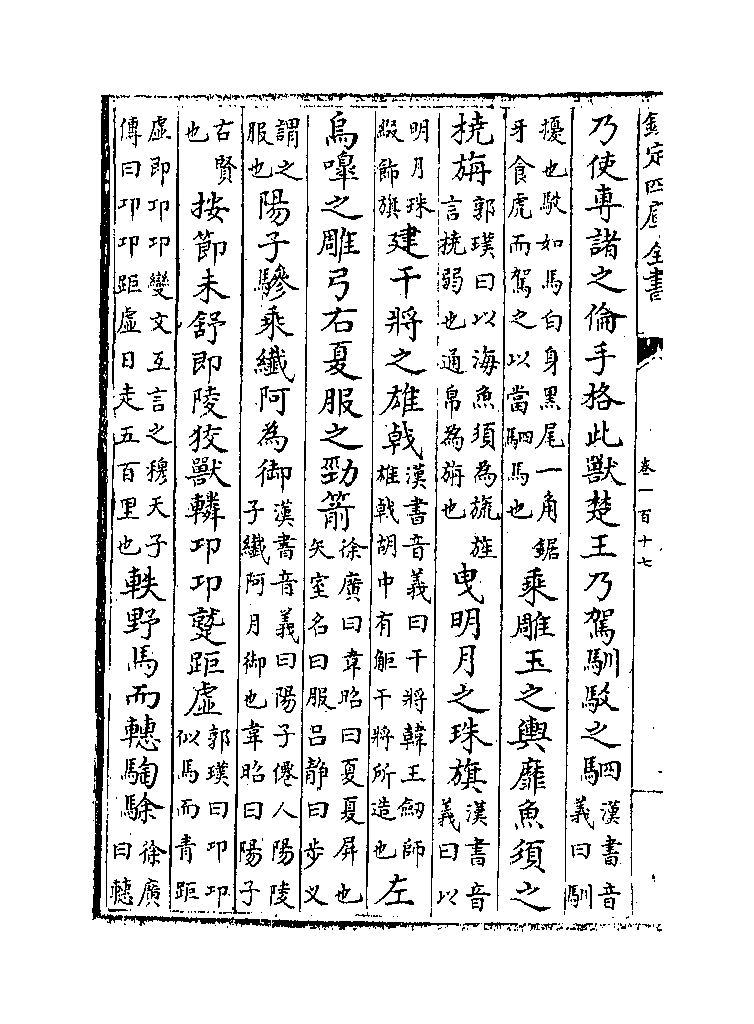 欽定四庫全書 卷一百十七
乃使専諸之倫手格此獸楚王乃駕馴駮之駟漢書音義曰馴
擾也駮如馬白身黑尾一角鋸牙食虎而駕之以當駟馬也乘雕玉之輿靡魚須之
撓旃郭璞曰以海魚須為旒旌言撓弱也通帛為旃也曳明月之珠旗漢書音義曰以
明月珠綴飾旗建干將之雄戟漢書音義曰干將韓王劒師雄戟胡中有鮔干將所造也左
烏嘷之雕弓右夏服之勁箭徐廣曰韋昭曰夏夏羿也矢室名曰服吕静曰步义
謂之服也陽子驂乘纖阿為御漢書音義曰陽子僊人陽陵子纖阿月御也韋昭曰陽子
古賢也按節未舒即陵狡獸轔卭卭蹵距虛郭璞曰卭卭似馬而青距
虛即卭卭變文互言之穆天子傳曰卭卭距虛日走五百里也軼野馬而轊騊駼徐廣曰轊